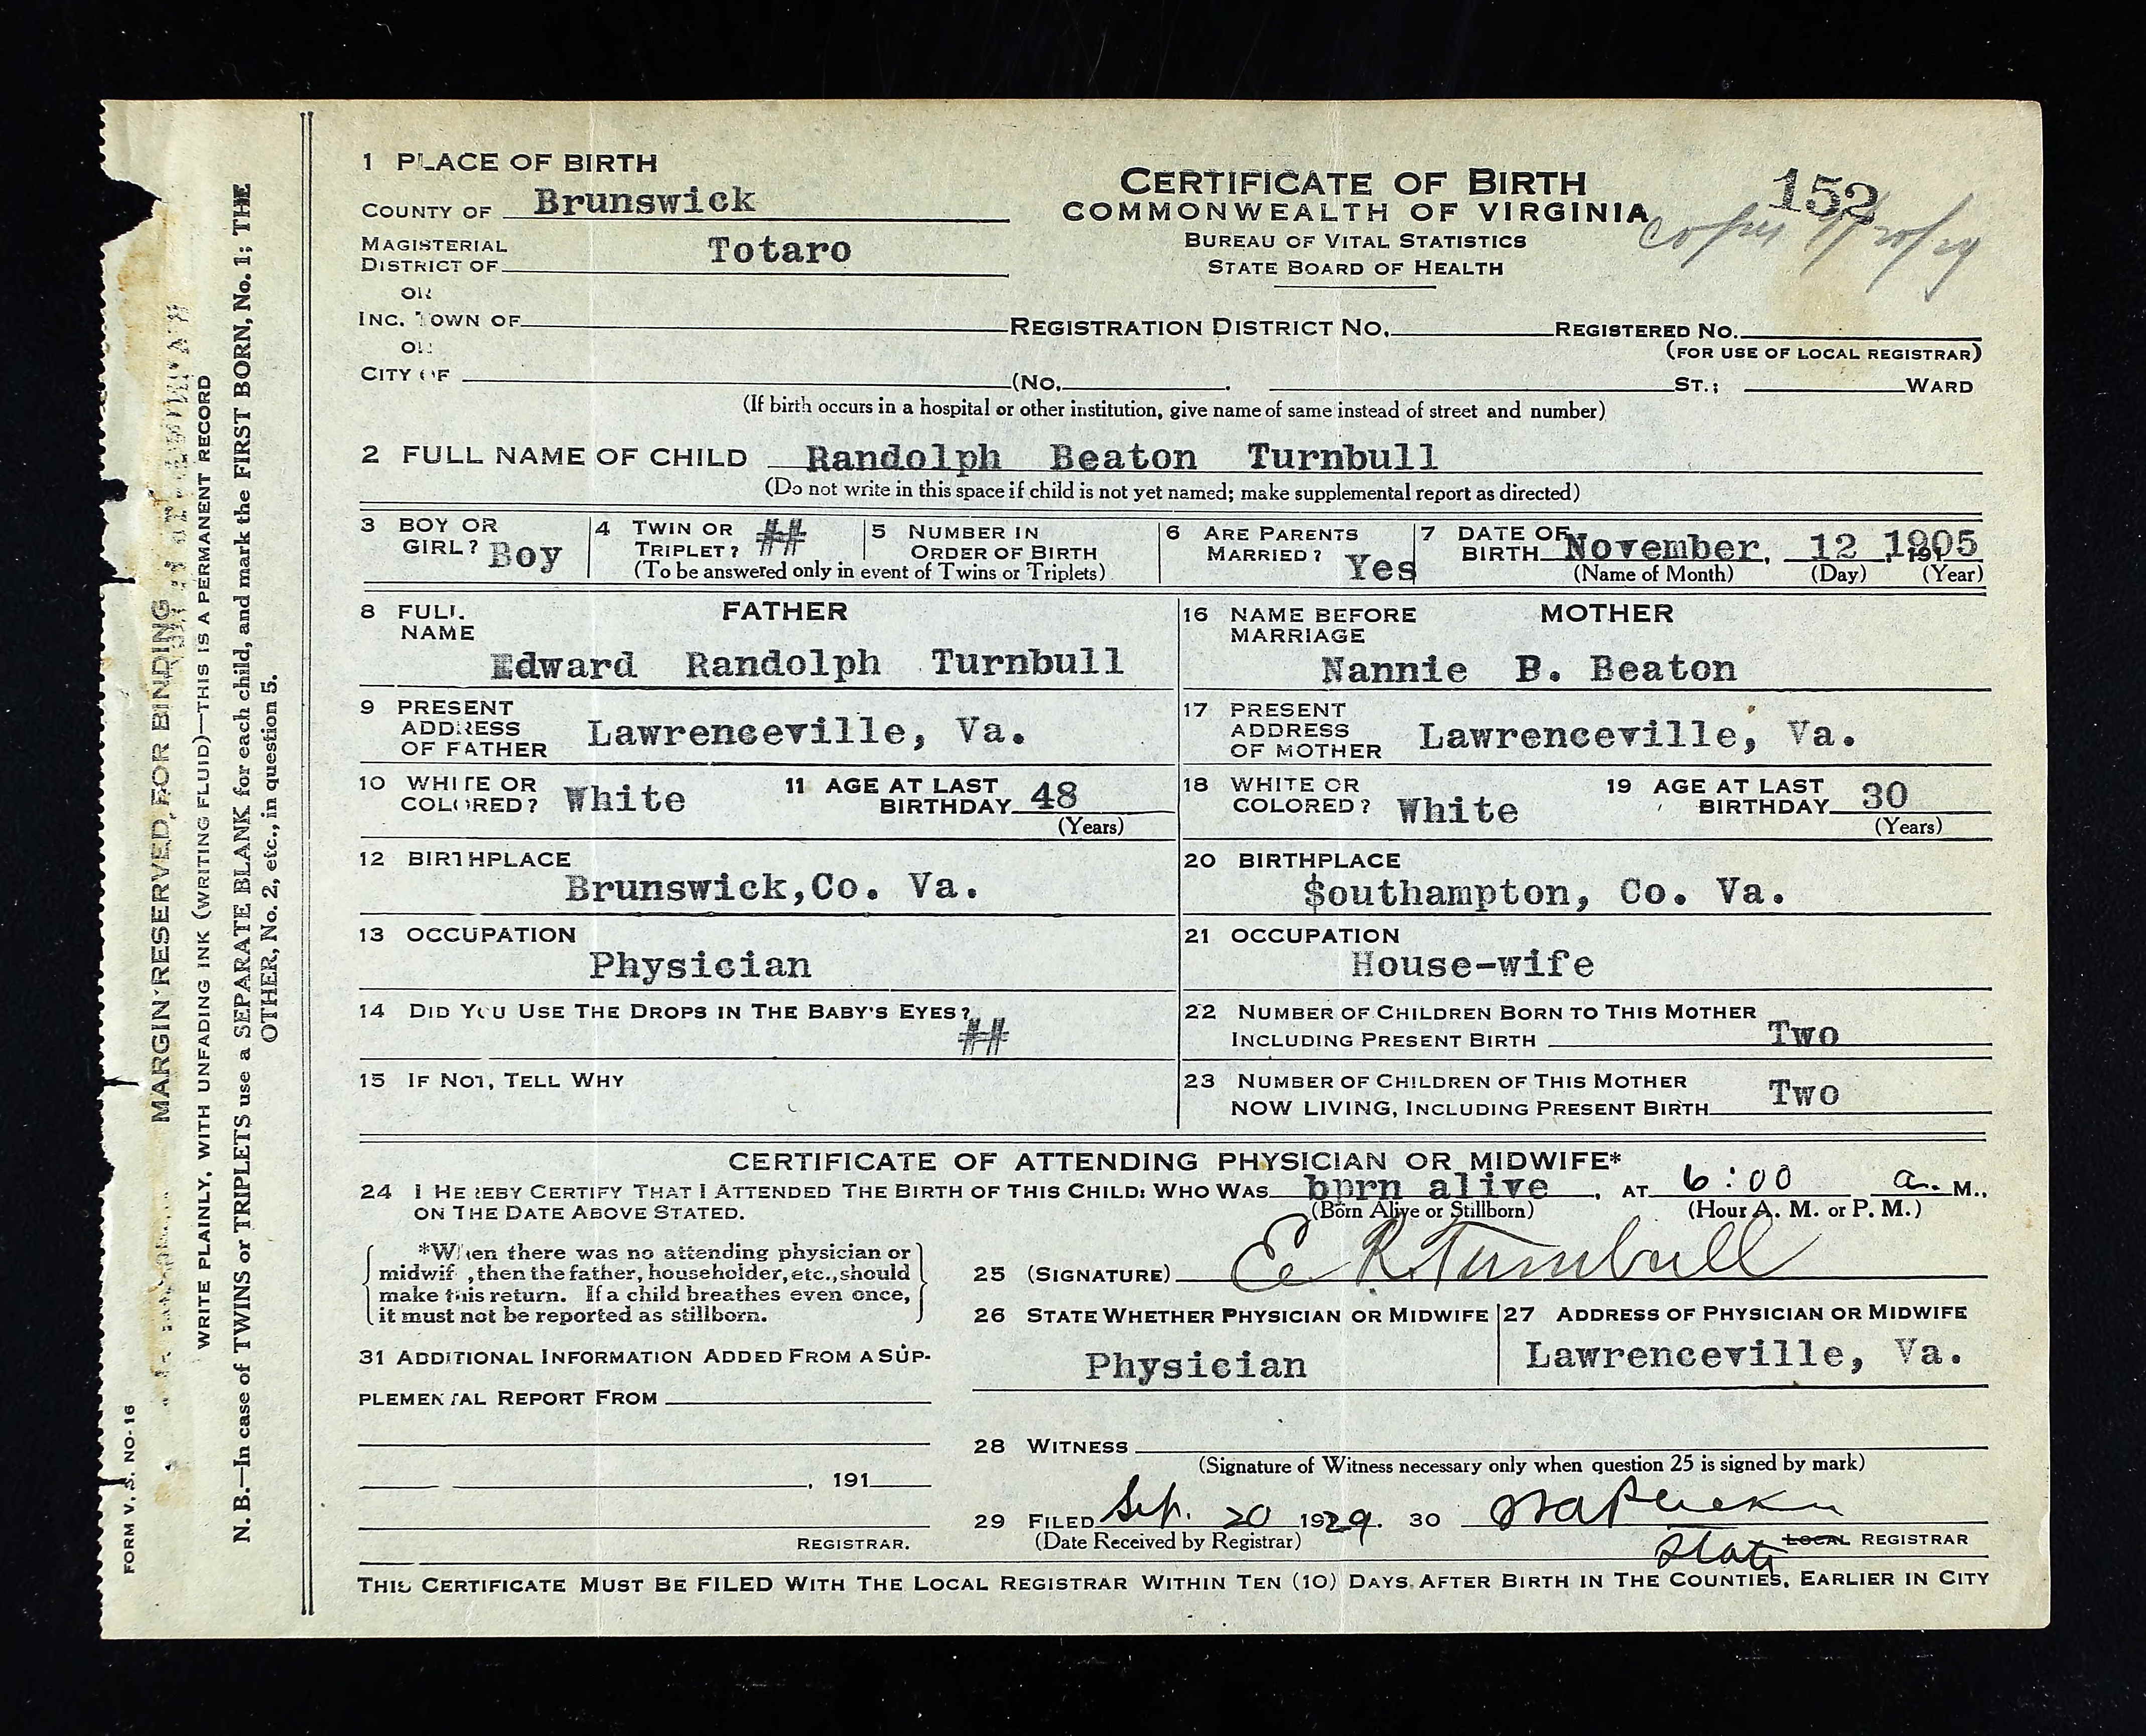 1 PLACE OF BIRTH
COUNTY OF Brunswick
MAGISTERIAL DISTRICT OF Totaro
OR
INC. TOWN OF
OR
CITY OF (No. ST.; WARD
CERTIFICATE OF BIRTH
COMMONWEALTH OF VIRGINIA
BUREAU OF VITAL STATISTICS
STATE BOARD OF HEALTH
152
REGISTRATION DISTRICT NO. REGISTERED NO.
(FOR USE OF LOCAL REGISTRAR)
(If birth occurs in a hospital or other institution, give name of same instead of street and number)
2 FULL NAME OF CHILD Randolph Beaton Turnbull
(Do not write in this space if child is not yet named; make supplemental report as directed)
3 BOY OR GIRL? Boy
4 TWIN OR TRIPLET? ##
5 NUMBER IN ORDER OF BIRTH
(To be answered only in event of Twins or Triplets)
6 ARE PARENTS MARRIED? Yes
7 DATE OF BIRTH November, 12 1905
(Name of Month) (Day) (Year)
FATHER
8 FULL NAME
Edward Randolph Turnbull
9 PRESENT ADDRESS OF FATHER Lawrenceville, Va.
10 WHITE OR COLORED? White
11 AGE AT LAST BIRTHDAY 48
(Years)
12 BIRTHPLACE
Brunswick,Co. Va.
13 OCCUPATION
Physician
14 DID YOU USE THE DROPS IN THE BABY'S EYES? ##
15 IF NOT, TELL WHY
MOTHER
16 NAME BEFORE MARRIAGE
Nannie B. Beaton
17 PRESENT ADDRESS OF MOTHER Lawrenceville, Va.
18 WHITE OR COLORED? White
19 AGE AT LAST BIRTHDAY 30
(Years)
20 BIRTHPLACE
Southampton, Co. Va.
21 OCCUPATION
House-wife
22 NUMBER OF CHILDREN BORN TO THIS MOTHER
INCLUDING PRESENT BIRTH Two
23 NUMBER OF CHILDREN OF THIS MOTHER
NOW LIVING, INCLUDING PRESENT BIRTH Two
CERTIFICATE OF ATTENDING PHYSICIAN OR MIDWIFE*
24 I HEREBY CERTIFY THAT I ATTENDED THE BIRTH OF THIS CHILD: WHO WAS bprn alive, AT 6:00 a. M.,
ON THE DATE ABOVE STATED. (Born Alive or Stillborn) (Hour A. M. or P. M.)
*When there was no attending physician or
midwife, then the father, householder, etc., should
make this return. If a child breathes even once,
it must not be reported as stillborn.
25 (SIGNATURE) E R Turnbull
26 STATE WHETHER PHYSICIAN OR MIDWIFE
Physician
27 ADDRESS OF PHYSICIAN OR MIDWIFE
Lawrenceville, Va.
31 ADDITIONAL INFORMATION ADDED FROM A SUP-
PLEMENTAL REPORT FROM
, 191
REGISTRAR.
28 WITNESS
(Signature of Witness necessary only when question 25 is signed by mark)
29 FILED Sep. 20 1929. 30
(Date Received by Registrar)
State LOCAL REGISTRAR
THIS CERTIFICATE MUST BE FILED WITH THE LOCAL REGISTRAR WITHIN TEN (10) DAYS AFTER BIRTH IN THE COUNTIES, EARLIER IN CITY
FORM V. S. NO-16
MARGIN RESERVED FOR BINDING
WRITE PLAINLY, WITH UNFADING INK (WRITING FLUID)—THIS IS A PERMANENT RECORD
N. B.—In case of TWINS or TRIPLETS use a SEPARATE BLANK for each child, and mark the FIRST BORN, No. 1; THE
OTHER, No. 2, etc., in question 5.